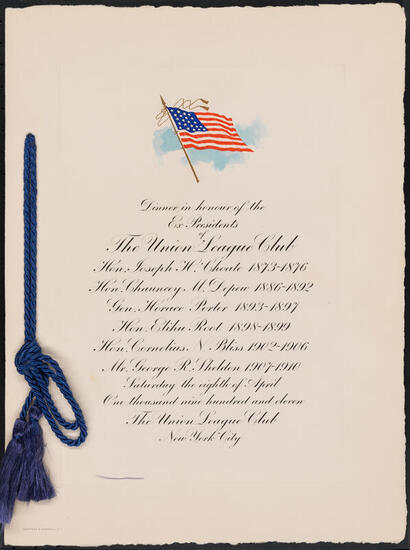 Dinner in honour of the
Ex Presidents
of
The Union League Club
Hon. Joseph H. Choate 1873-1876
Hon. Chauncey M. Depew 1886-1892
Gen. Horace Porter 1893-1897
Hon. Elihu Root 1898-1899
Hon. Cornelius N. Bliss 1902-1906
Mr. George R. Sheldon 1907-1910
Saturday the eighth of April
One thousand nine hundred and eleven
The Union League Club
New York City